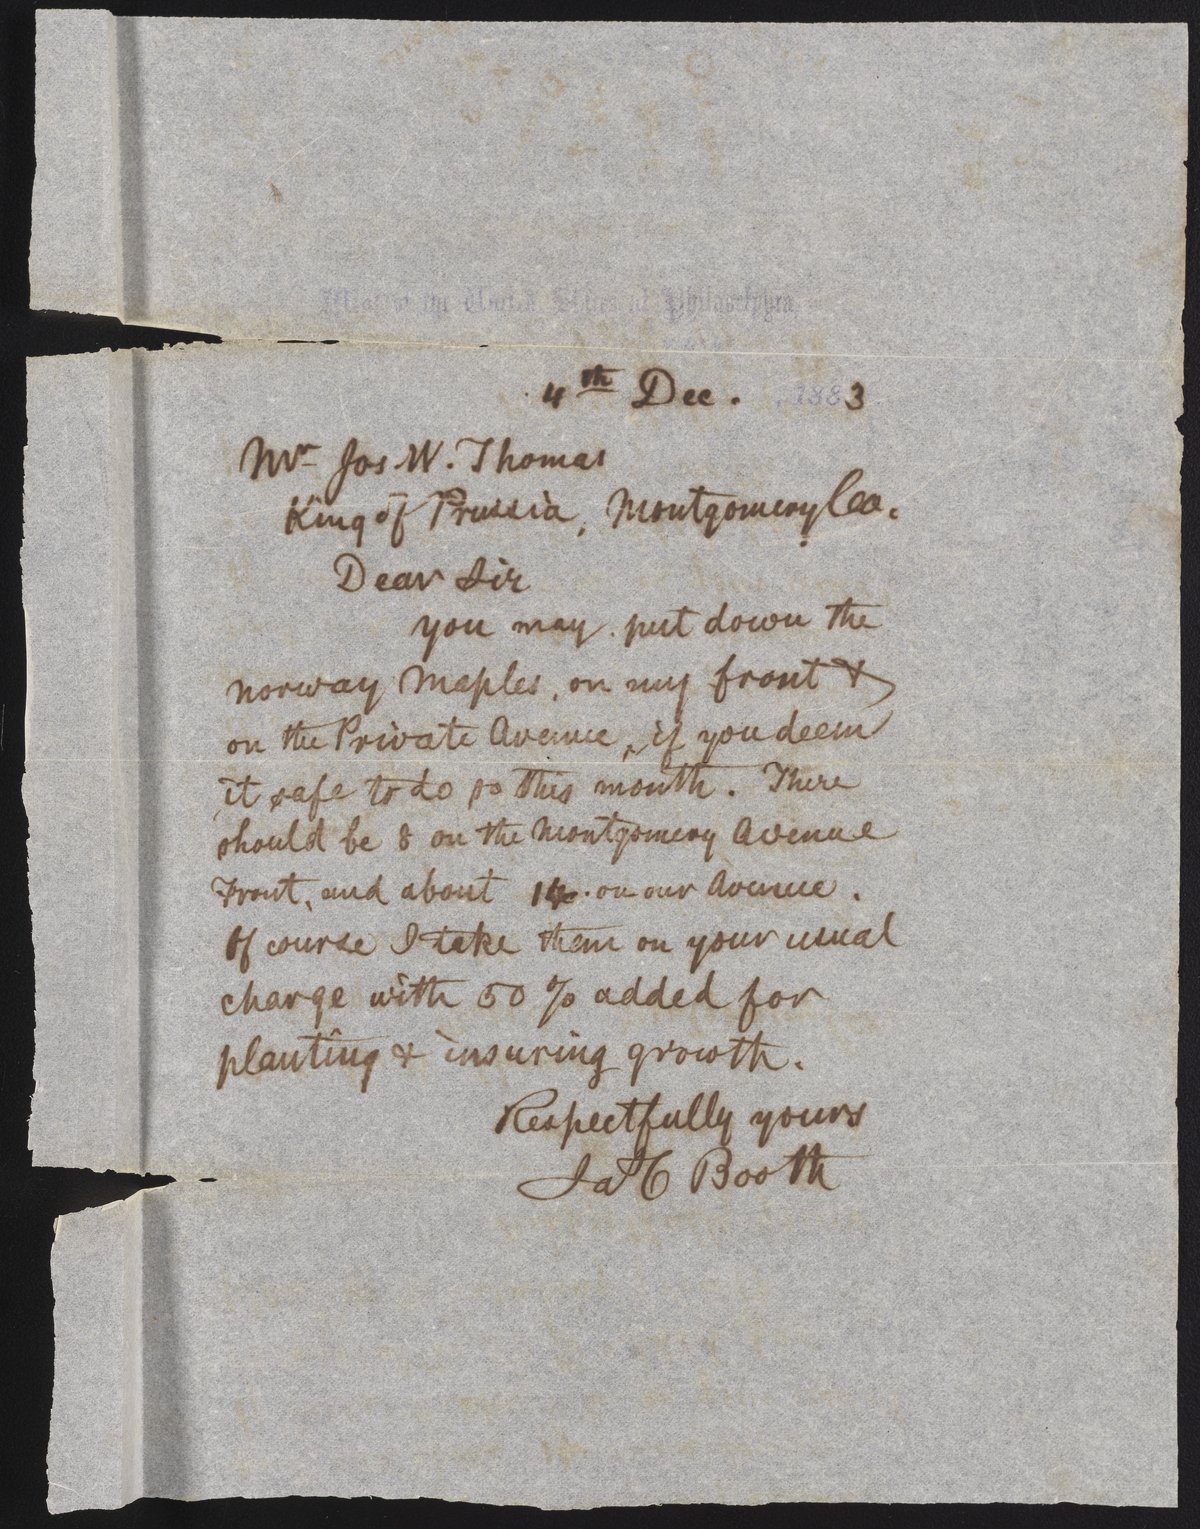 Mint of the United States at Philadelphia
4th Dec. , 1883
Mr Jos W. Thomas
King of Prussia, Montgomery Co.
Dear Sir
You may put down the
norway Maples, on my front &
on the Private Avenue, if you deem
it safe to do so this month. There
should be 8 on the Montgomery Avenue
Front, and about on our Avenue.
Of course I take them on your usual
charge with 50 % added for
planting & insuring growth.
Respectfully yours
Jas C Booth